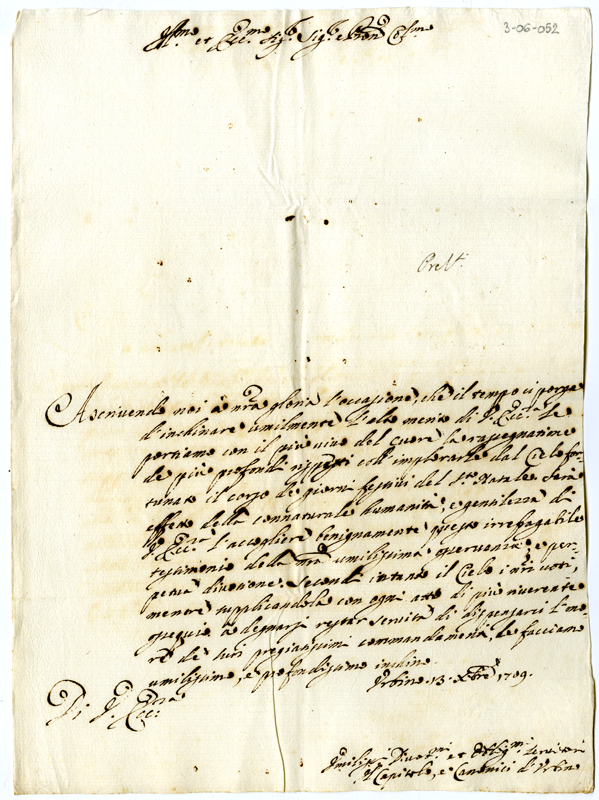 3-06-052
Ill.mo et Ecc.mo Sig.r Sig.r e Pron Col.mo
Ascrivendo noi à nr̃a gloria l'occasione, che il tempo ci porge
d'inchinare umilmente l'alto merito di V. Ecc.za le
portiamo con il più vivo del cuore la rassegnazione
de più profondi rispetti coll'implorarle dal Cielo for-
tunato il corso de giorni festivi del S.to Natale. Sarà
effetto della connaturale humanità, e gentilezza di
V. Ecc.za l'accogliere benignamente questo irrefragabile
testimonio della nr̃a umilissima osservanza, e per-
petua divozione. Secondi intanto il Cielo i nr̃i voti,
mentre supplicandola con ogni atto di più riverente
ossequio à degnarsi restar servita di dispensarci l'ono-
re de suoi pregiatissimi commandamenti, le facciamo
umilissimo, e profondissimo inchino.
Urbino 13. Xbre 1709.
Di V. Ecc.za
Umiliss.i Divot.mi et Oblig.mi Servitori
Il Capitolo, e Canonici d'Urbino